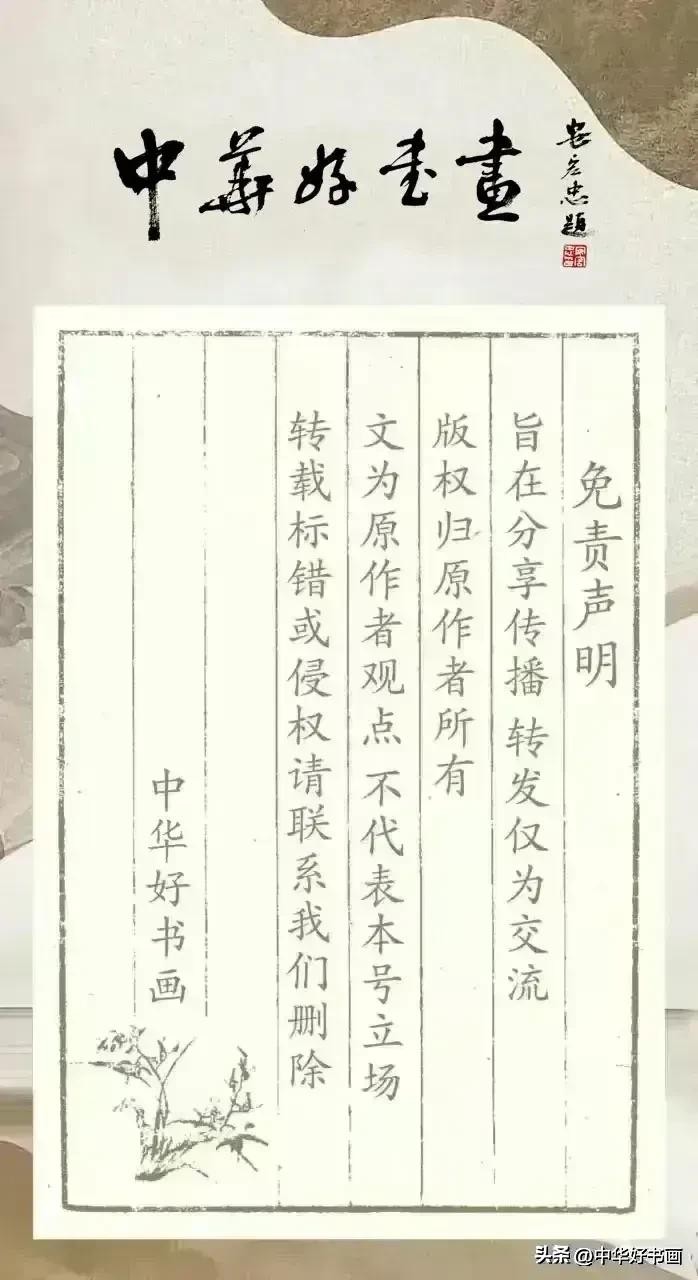 中華好書畫
忠題
免责声明
旨在分享传播 转发仅为交流
版权归原作者所有
文为原作者观点 不代表本号立场
转载标错或侵权请联系我们删除
中华好书画
头条 @中华好书画